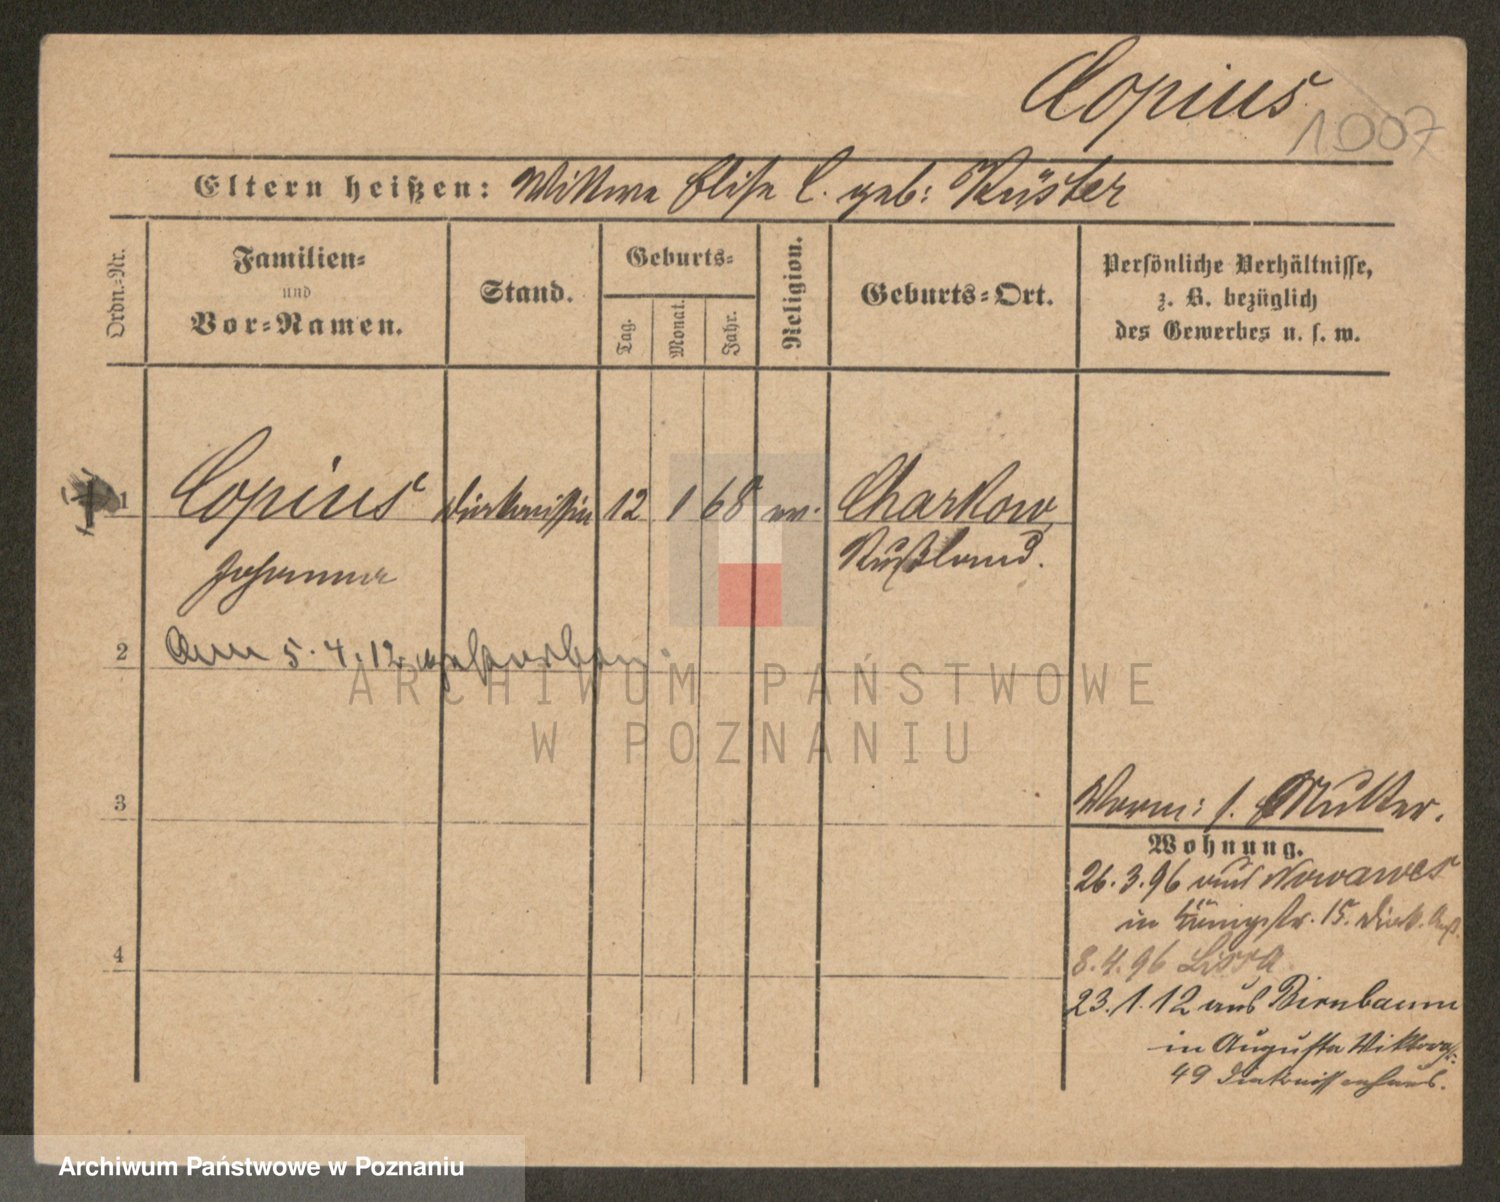 Copius
1007
Eltern heißen: Wittwe Elise C. geb: Küster
Ordn.-Nr.
Familien-
und
Vor-Namen.
Stand.
Geburts-
Tag.
Monat.
Jahr.
Religion.
Geburts-Ort.
Persönliche Verhältnisse,
z. B. bezüglich
des Gewerbes u. s. w.
1 Copius Diakonissin 12 1 68 ev. Charkow,
Johanna Rußland.
2 Am 5.4.12 gestorben.
ARCHIWUM PAŃSTWOWE
W POZNANIU
3
Vorm: s. Mutter.
Wohnung.
26.3.96 aus Nowawes
in Königstr. 15. Diak.
4
8.4.96 Lissa
23.1.12 aus Birnbaum
in Augusta Viktoriastr:
49 Diakonissenhaus.
Archiwum Państwowe w Poznaniu